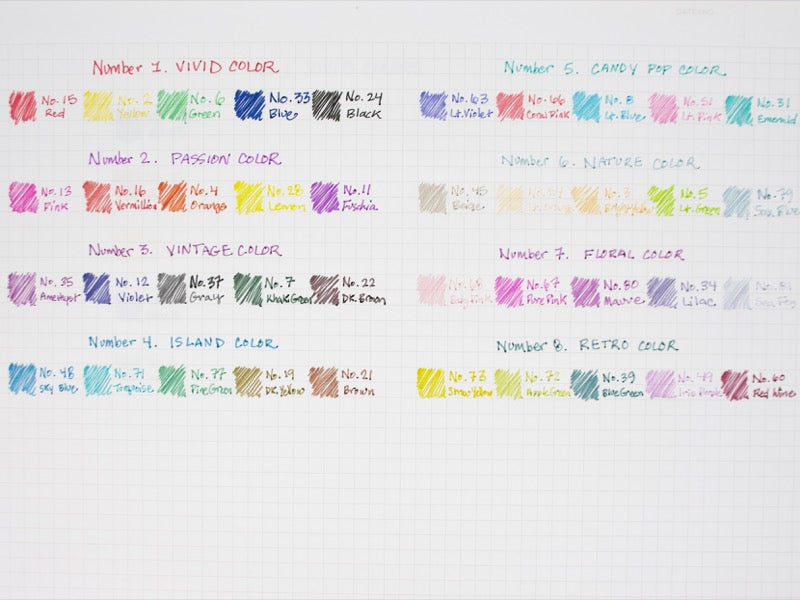 Number 1. VIVID COLOR
No. 15 Red No. 2 Yellow No. 6 Green No. 33 Blue No. 24 Black
Number 2. PASSION COLOR
No. 13 Pink No. 16 Vermillion No. 4 Orange No. 28 Lemon No. 11 Fuschia
Number 3. VINTAGE COLOR
No. 35 Amethyst No. 12 Violet No. 37 Gray No. 7 Khaki Green No. 22 DK. Brown
Number 4. ISLAND COLOR
No. 48 Sky Blue No. 71 Turquoise No. 77 Pine Green No. 19 DK. Yellow No. 21 Brown
Number 5. CANDY POP COLOR
No. 63 Lt. Violet No. 66 Coral Pink No. 8 Lt. Blue No. 51 Lt. Pink No. 31 Emerald
Number 6. NATURE COLOR
No. 45 Beige Lt. Orange No. 3 No. 5 Lt. Green No. 39 Sea Blue
Number 7. FLORAL COLOR
No. 68 Baby Pink No. 67 Pure Pink No. 80 Mauve No. 34 Lilac No. 81 Sea Fog
Number 8. RETRO COLOR
No. 73 Straw Yellow No. 72 Apple Green No. 39 Blue Green No. 49 Iris Purple No. 60 Red Wine